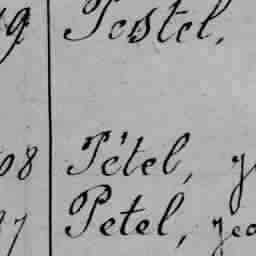 9 Pestel,
08 Pétel, 
7 Petel, Jea